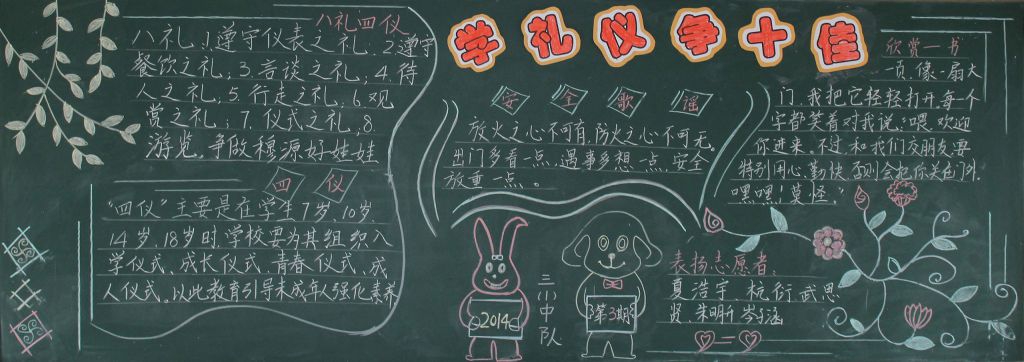 学礼仪争十佳
八礼四仪
八礼:1.遵守仪表之礼;2.遵守
餐饮之礼;3.言谈之礼;4.待
人之礼;5.行走之礼;6.观
赏之礼;7.仪式之礼;8.
游览。争做穆源好娃娃
四仪
“四仪”主要是在学生7岁、10岁
14岁、18岁时,学校要为其组织入
学仪式、成长仪式、青春仪式、成
人仪式。以此教育引导未成年人强化素养
安全歌谣
放火之心不可有,防火之心不可无,
出门多看一点,遇事多想一点,安全
放重一点。
欣赏一书
一页,像一扇大
门,我把它轻轻打开,每一个
字都笑着对我说:“喂,欢迎
你进来,不过,和我们交朋友,要
特别用心,勤快,否则会把你关在门外,
嘿嘿!莫怪。”
2014
三(1)中队
第3期
表扬志愿者:
夏浩宇 杭衍 武思
贤 朱明昕